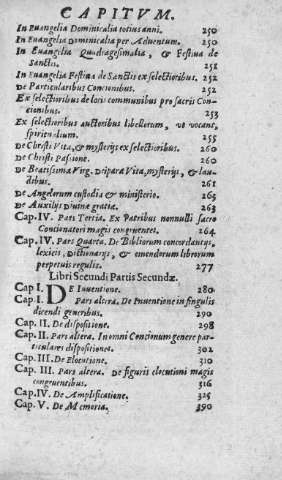 CAPITVM.
In Euangelia Dominicalia totius anni. 250
In Euangelia Dominicalia per Aduentum. 250
In Euangelia Quadragesimalia, & Festiua de
Sanctis. 251
In Euangelia Festiua de Sanctis ex selectioribus. 252
De Particularibus Concionibus. 252
Ex selectioribus de locis communibus pro sacris Con-
cionibus. 253
Ex selectioribus auctoribus libellorum, vt vocant,
spiritualium. 255
De Christi Vita, & mysterijs ex selectioribus. 260
De Christi Passione. 260
De Beatissima Virg. Deipara Vita, mysterijs, & lau-
dibus. 261
De Angelorum custodia & ministerio. 263
De Auxilijs Diuinæ gratiæ 263
Cap. IV. Pars Tertia. Ex Patribus nonnulli sacro
Concionatori magis congruentes. 264
Cap. IV. Pars Quarta. De Bibliorum concordantijs,
lexicis, Dictionarijs, & emendorum librorum
perpetuis regulis. 277
Libri Secundi Partis Secundæ.
Cap I. DE Inuentione. 280
Cap. I. Pars altera. De Inuentione in singulis
dicendi generibus. 290
Cap. II. De dispositione. 298
Cap. II. Pars altera. In omni Concionum genere par-
ticulares dispositiones. 302
Cap. III. De Elocutione. 310
Cap. III. Pars altera. De figuris elocutioni magis
congruentibus. 316
Cap. IV. De Amplificatione. 325
Cap. V. De Memoria. 390